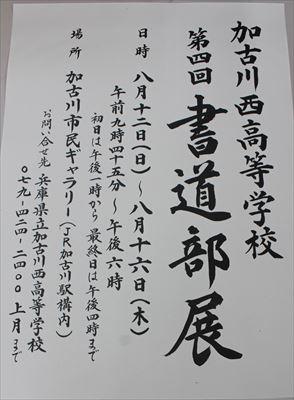 加古川西高等学校
第四回 書道部展
日時 八月十二日(日)〜八月十六日(木)
午前九時四十五分〜午後六時
初日は午後一時から 最終日は午後四時まで
場所 加古川市民ギャラリー(JR加古川駅構内)
お問い合せ先 兵庫県立加古川西高等学校
〇七九-四二四-二四〇〇 上月まで